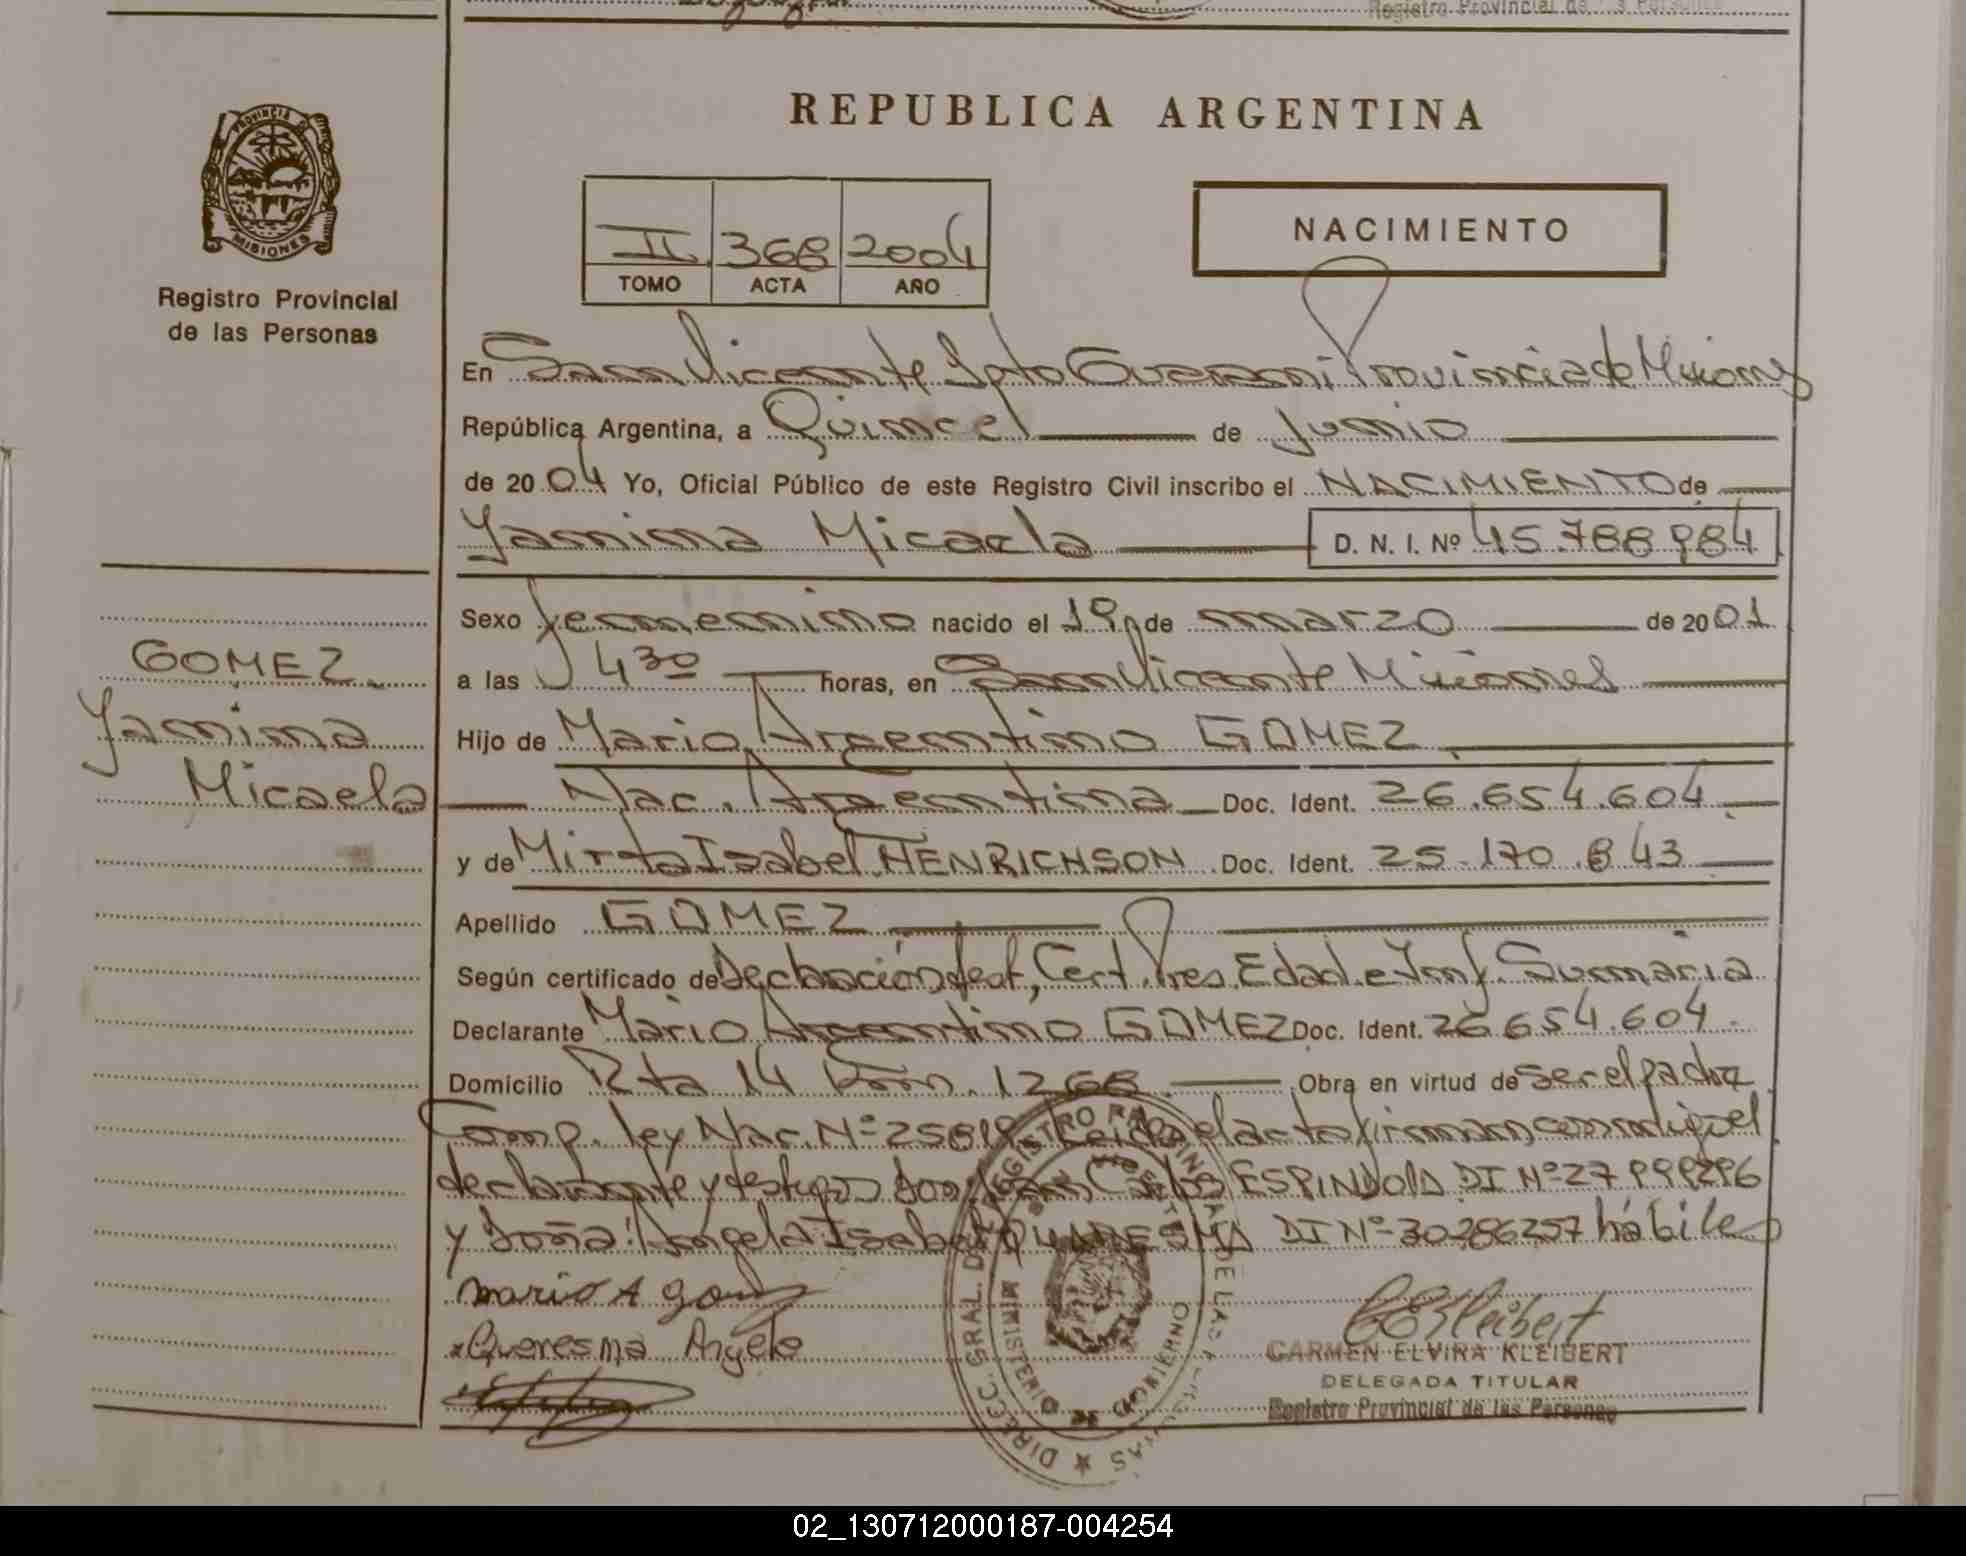 Registro Provincial de las Personas
REPUBLICA ARGENTINA
PROVINCIA DE
MISIONES
Registro Provincial
de las Personas
II 368 2004
TOMO ACTA AÑO
NACIMIENTO
En San Vicente Dpto Guarani Provincia de Misiones
República Argentina, a Quince de Junio
de 2004 Yo, Oficial Público de este Registro Civil inscribo el NACIMIENTO de
Yamima Micaela D. N. I. Nº 45.788.984
Sexo femenino nacido el 19 de marzo de 2001
a las 4 30 horas, en San Vicente Misiones
GOMEZ
Yamima
Micaela
Hijo de Mario Argentino GOMEZ
Nac. Argentina Doc. Ident. 26.654.604
y de Mirta Isabel HENRICHSON Doc. Ident. 25.170.843
Apellido GOMEZ
Según certificado de Declaración Test, Cert. Pres. Edad e Inf. Sumaria
Declarante Mario Argentino GOMEZ Doc. Ident. 26.654.604
Domicilio Rta 14 Km. 1268 Obra en virtud de ser el padre
Comp. ley Nac. Nº 25819 Leida el acta firman conmigo el
declarante y testigos Don Juan Carlos ESPINDOLA DI Nº 27 999296
y Doña: Angela Isabel QUARESMA DI Nº 30286257 hábiles
Mario A Gomez
Queresma Angela
CARMEN ELVIRA KLEIBERT
DELEGADA TITULAR
Registro Provincial de las Personas
DIRECC. GRAL. DEL REGISTRO PROVINCIAL DE LAS PERSONAS
SAN VICENTE
MINISTERIO DE GOBIERNO
02_130712000187-004254